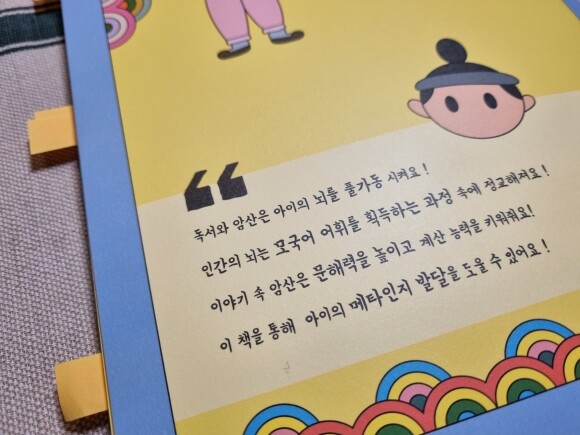 독서와 암산은 아이의 뇌를 풀가동 시켜요!
인간의 뇌는 모국어 어휘를 획득하는 과정 속에 정교해져요!
이야기 속 암산은 문해력을 높이고 계산 능력을 키워줘요!
이 책을 통해 아이의 메타인지 발달을 도울 수 있어요!